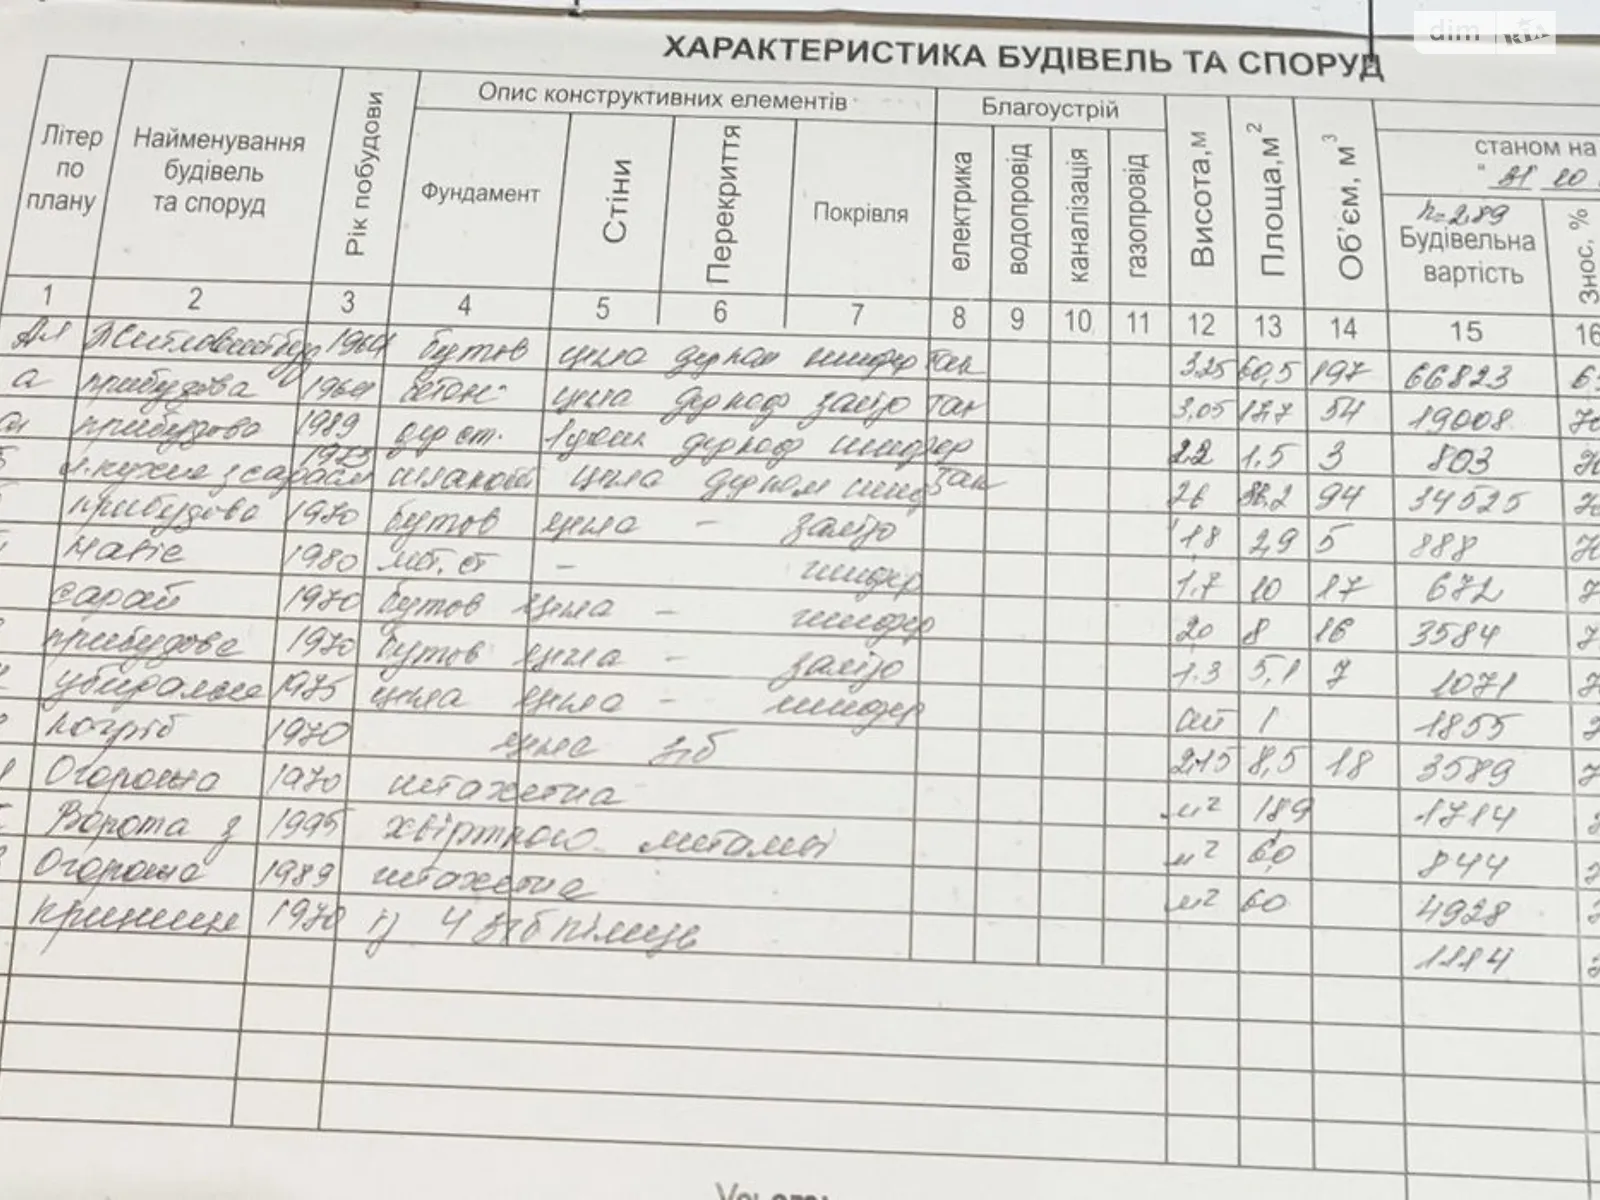 dim RIA
ХАРАКТЕРИСТИКА БУДІВЕЛЬ ТА СПОРУД
Літер по плану
Найменування будівель та споруд
Рік побудови
Опис конструктивних елементів
Фундамент
Стіни
Перекриття
Покрівля
Благоустрій
електрика
водопровід
каналізація
газопровід
Висота,м
Площа,м2
Об'єм, м3
станом на
" 31 10
h=2,89
Будівельна вартість
Знос, %
1 2 3 4 5 6 7 8 9 10 11 12 13 14 15 16
1964 бутов цегла шифер так 3.25 60,5 197 66823
а прибудова 1964 бетон цегла залізо так 3,05 17,7 54 19008
прибудова 1989 шифер 2.2 1.5 3 803
цегла так 94 34525
прибудова 1970 бутов цегла - залізо 1,8 2,9 5 888
навіс 1980 - шифер 1.7 10 17 672
сарай 1970 бутов цегла - шифер 2,0 8 16 3584
прибудова 1970 бутов цегла - залізо 1.3 5,1 7 1071
убиральня 1975 цегла цегла - шифер 1 1855
погріб 1970 цегла з/б 2,15 8,5 18 3589
Огорожа 1970 штахетна м2 189 1714
Ворота з 1995 хвірткою металеві м2 6,0 844
Огорожа 1989 штахетна м2 60 4928
криниця 1970 4 з/б кілець